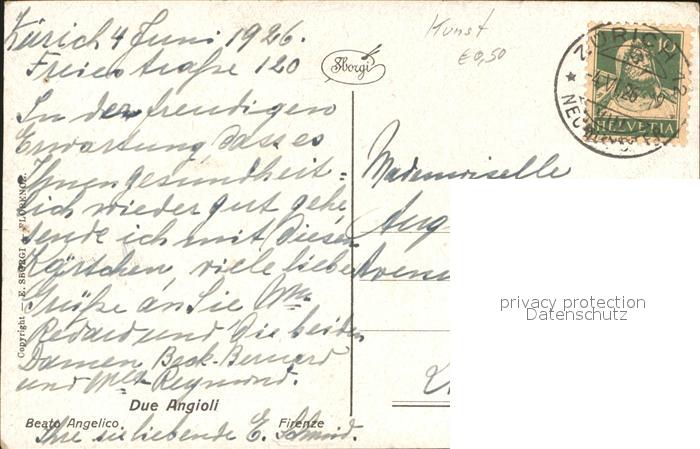 Zürich 4 Juni 1926.
Freiestraße 120
In der freudigen
Erwartung dass es
Ihnen gesundheit-
lich wieder gut gehe
sende ich mit diesem
Kärtchen viele liebe
Grüße an Sie Mme
Redard und die beiden
Damen Beck-Bernard
und Mlle Reymond.
Ihre sie liebende E. Schmid.
Due Angioli
Beato Angelico
Firenze
Copyright — E. SBORGI — FLORENCE
Sborgi
Kunst
€ 0,50
ZÜRICH 12
HELVETIA
10
Mademoiselle
Aug
Avenu
privacy protection
Datenschutz